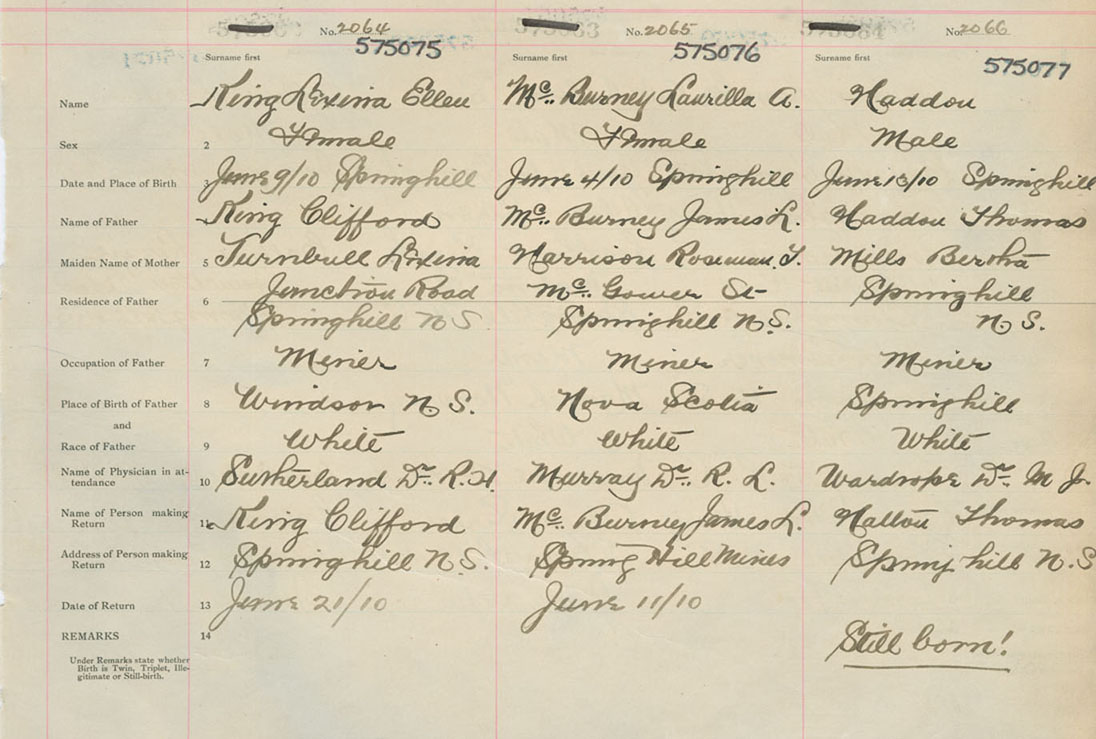 No. 2064 No. 2065 No. 2066
575075 575076 575077
Surname first Surname first Surname first
Name King Lexina Ellen Mc. Burney Laurilla A. Haddou
Sex 2 Female Female Male
Date and Place of Birth 3 June 9/10 Springhill June 4/10 Springhill June 13/10 Springhill
Name of Father King Clifford Mc. Burney James L. Haddou Thomas
Maiden Name of Mother 5 Turnbull Lexina Harrison F. Mills Bertha
Residence of Father 6 Junction Road Mc. Gower St Springhill
Springhill N S Springhill N.S. N S.
Occupation of Father 7 Miner Miner Miner
Place of Birth of Father 8 Windsor N S. Nova Scotia Springhill
and
Race of Father 9 White White White
Name of Physician in at-
tendance 10 Sutherland Dr. R. H. Murray Dr. R. L. Wardrope Dr. M J.
Name of Person making
Return 11 King Clifford Mc. Burney James L. Hatton Thomas
Address of Person making
Return 12 Springhill N.S. Spring Hill Mines Spring hill N.S
Date of Return 13 June 21/10 June 11/10
REMARKS 14 Still born!
Under Remarks state whether
Birth is Twin, Triplet, Ille-
gitimate or Still-birth.